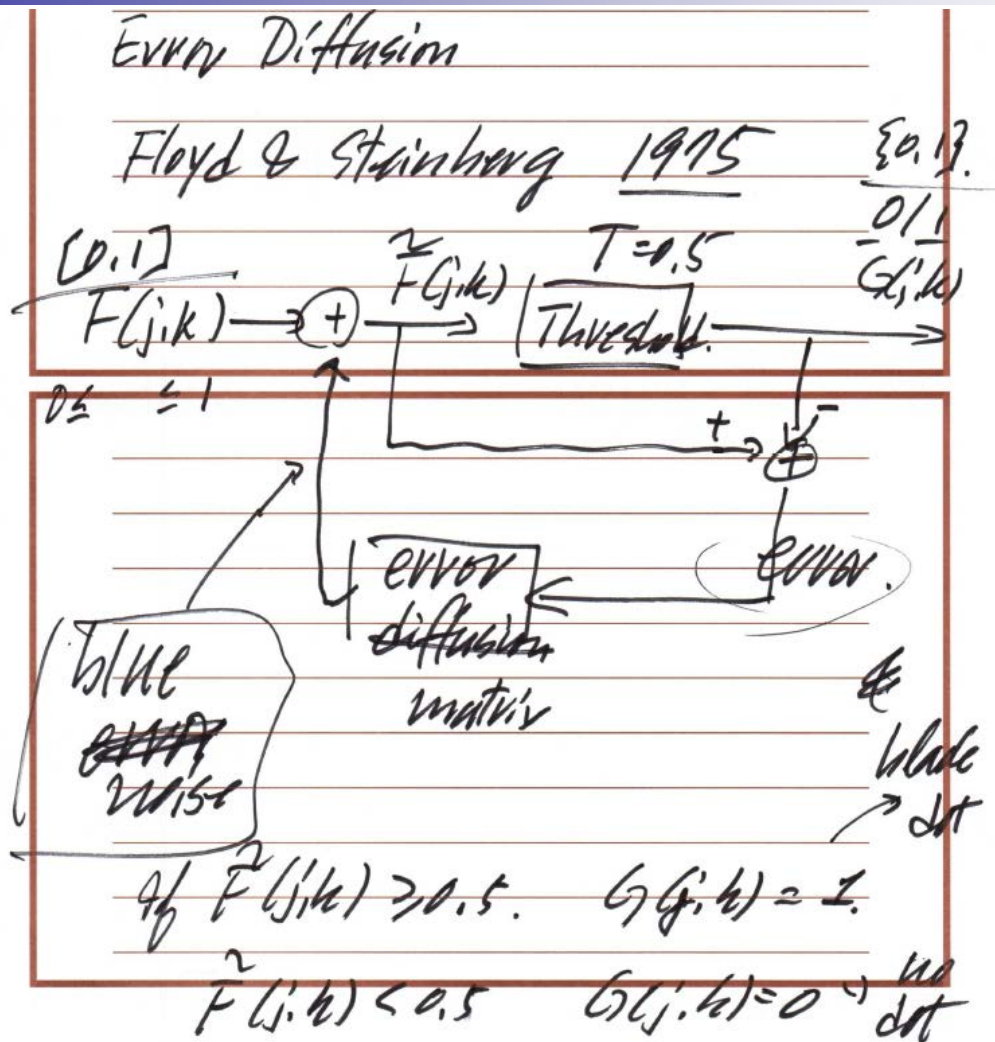 Error Diffusion
Floyd & Steinberg 1975
{0,1}.
[0,1]
F̃(j,k)
T=0.5
0/1
G(j,k)
F(j,k)
+
Threshold.
0≤ ≤1
+
-
+
error
diffusion
matrix
error.
blue
noise
black
dot
If F̃(j,k) ≥ 0.5. G(j,k) = 1.
F̃(j,k) < 0.5 G(j,k) = 0
no
dot